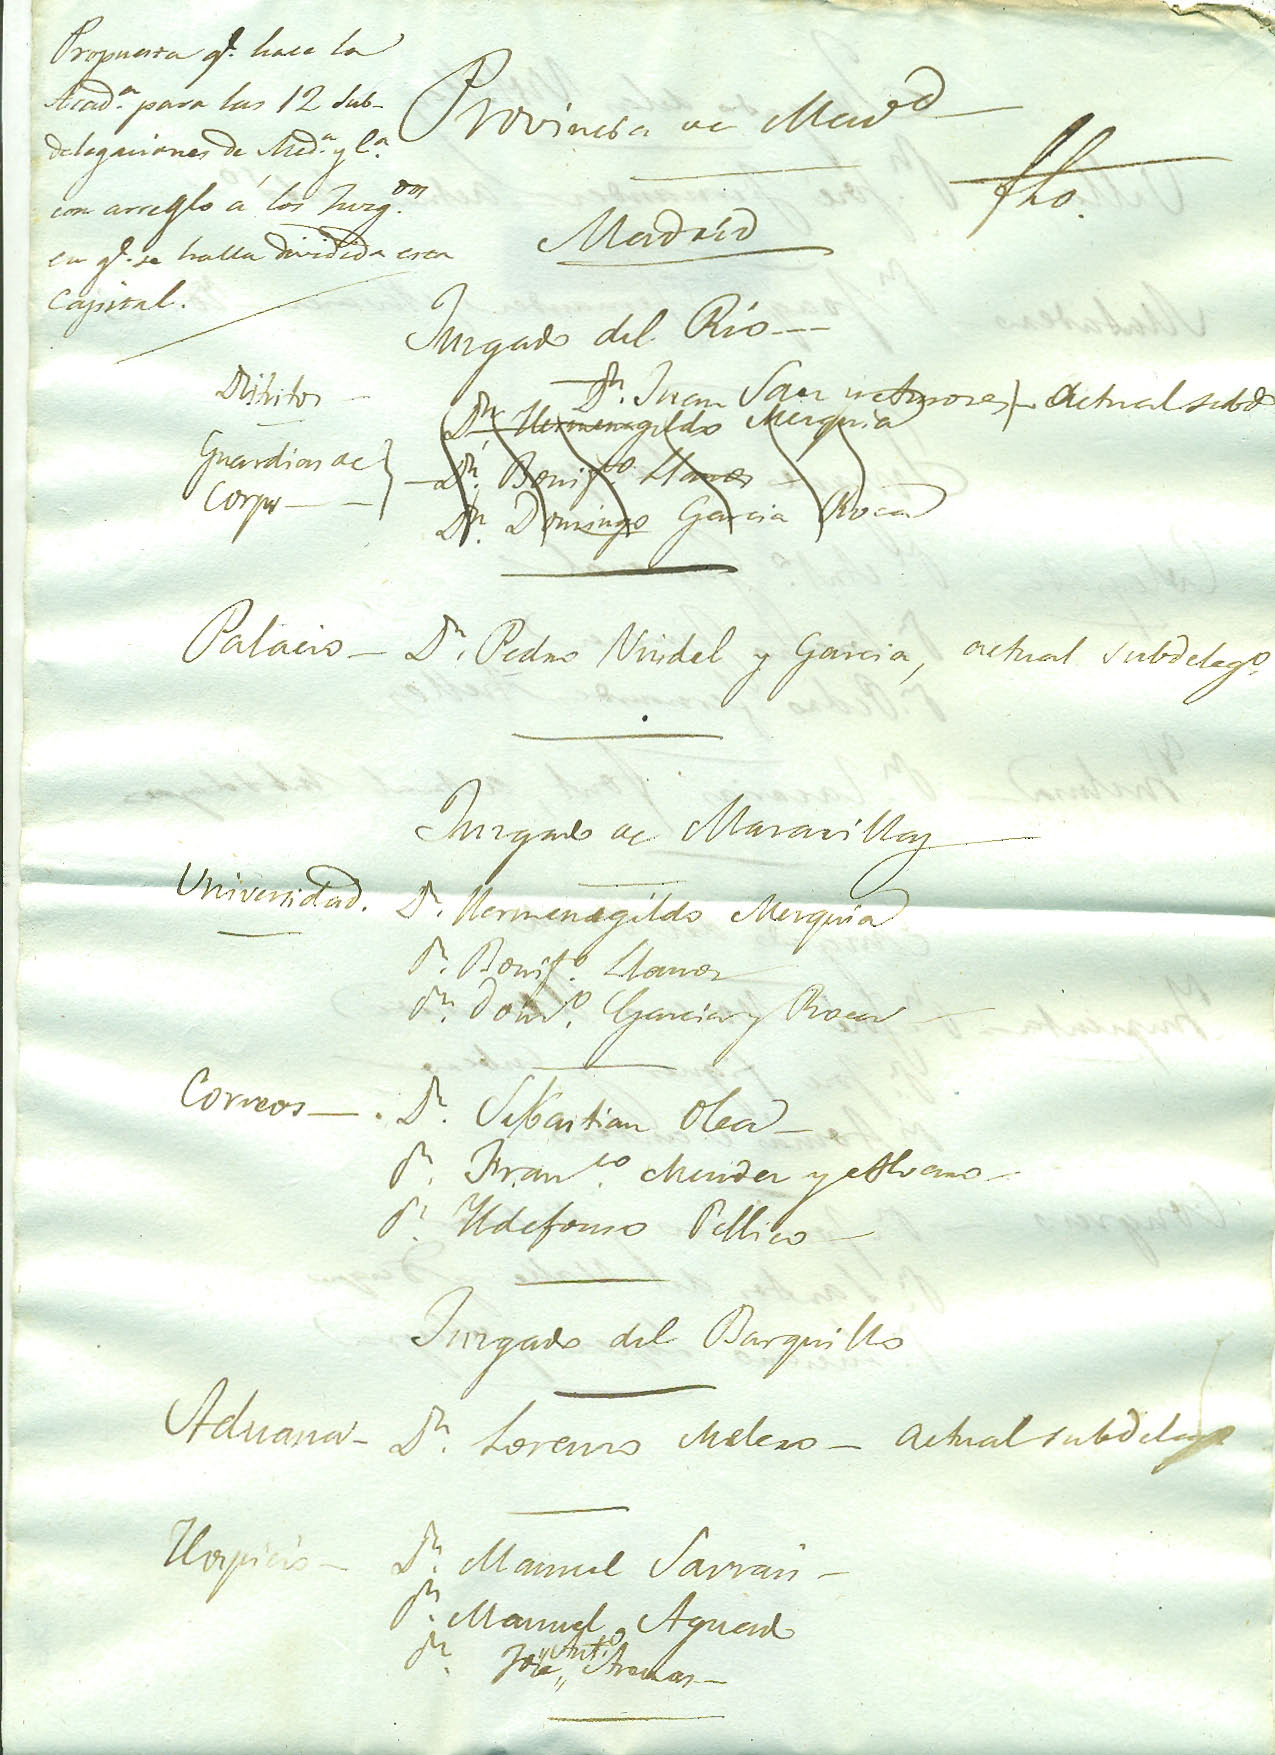 Propuesta q.e hace la
Acad.a para las 12 sub-
delegaciones de Med.a y C.a
con arreglo á los Juzg.dos
en q.e se halla dividida esta
Capital.
Provincia de Mad.d
fho.
Madrid
Juzgado del Rio
Distritos
D.n Juan actual subd
Guardias de
Corps
D.n Hermenegildo Merquia
D.n Bonif.o Llanos
D.n Domingo Garcia Roca
Palacio - D.n Pedro Vindel y Garcia, actual subdeleg.o
Juzgado de Maravillas
Universidad. D.n Hermenegildo Merquia
D.n Bonif.o Llanos
D.n Dom.o Garcia y Roca
Correos - D.n Sebastian Olea
D.n Fran.co Mendez y Alvaro
D.n Ildefonso Pellico
Juzgado del Barquillo
Aduana - D.n Lorenzo actual subdeleg
Hospicio - D.n Manuel Sarrais
D.n Manuel Aguado
D.n José "Ant.o" Arenas